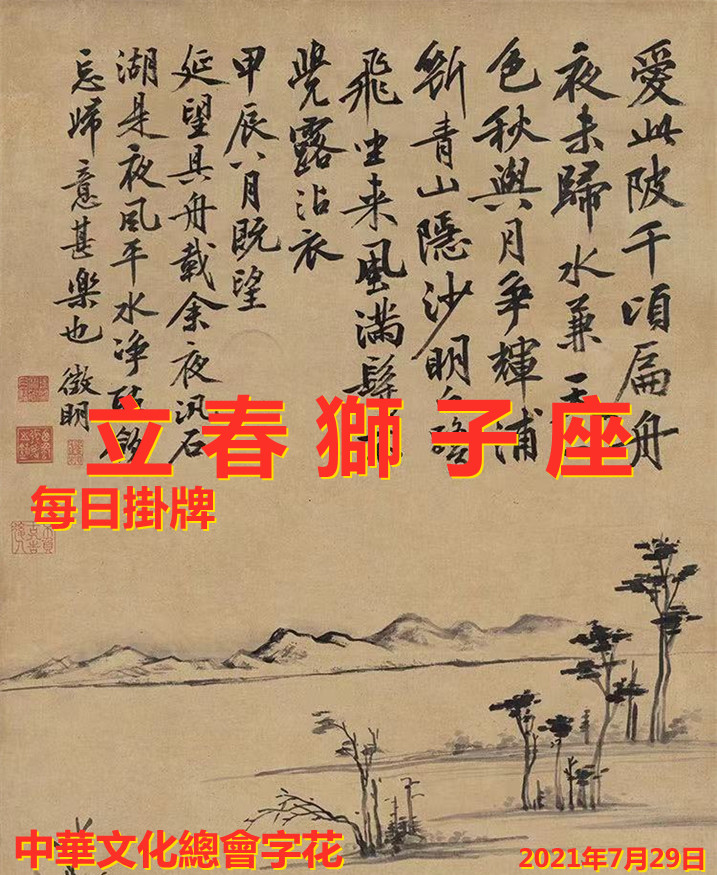 愛此陂千頃扁舟
夜未歸水兼
色秋與月爭輝浦
斷青山隱沙明
飛坐来風滿鬢
覺露沾衣
甲辰八月既望
延望具舟載余夜汎石
湖是夜風平水净
忘歸意甚樂也 徵明
立春獅子座
每日掛牌
中華文化總會字花
2021年7月29日